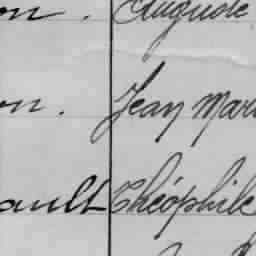 on. Auguste
on. Jean Mari
ault Théophile